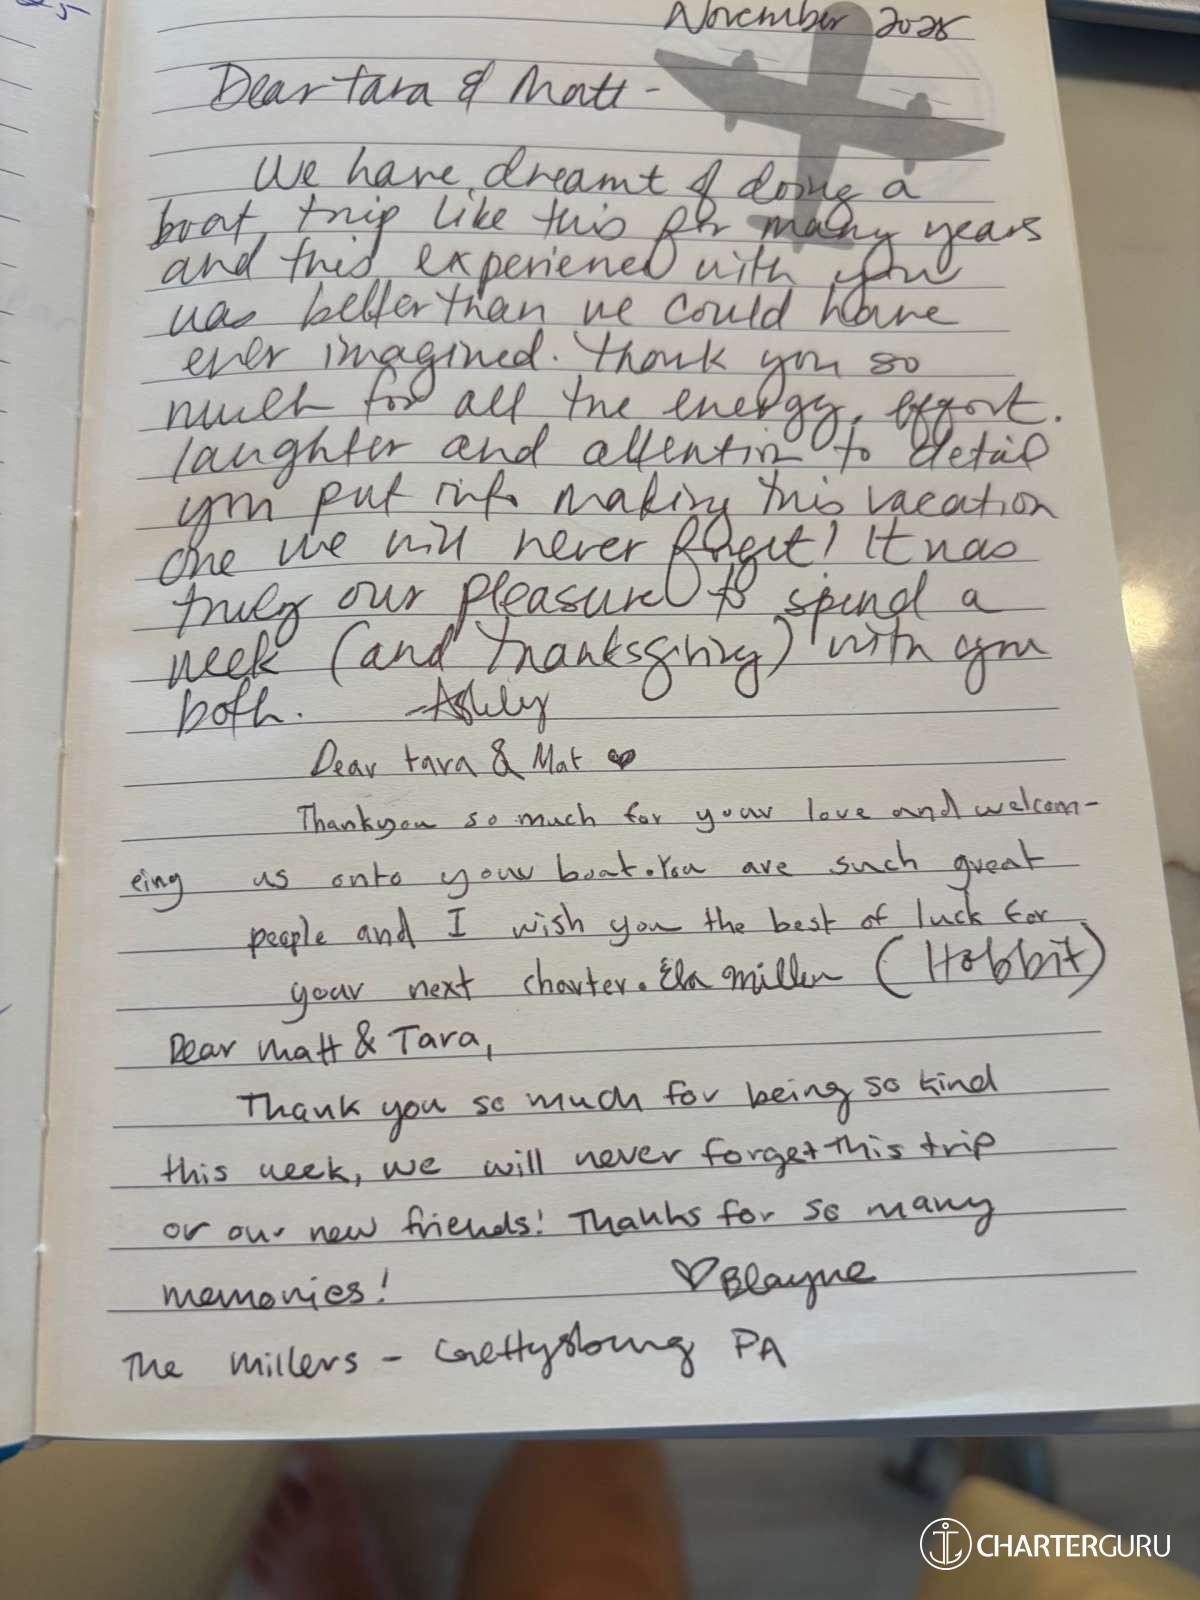 November 2025
Dear Tara & Matt -
We have dreamt of doing a
boat trip like this for many years
and this experience with you
was better than we could have
ever imagined. Thank you so
much for all the energy, effort,
laughter and attention to detail
you put into making this vacation
one we will never forget! It was
truly our pleasure to spend a
week (and Thanksgiving) with you
both. -Ashley
Dear Tara & Mat ♥
Thankyou so much for your love and welcom-
eing us onto your boat. You are such great
people and I wish you the best of luck for
your next charter. Ela Miller (Hobbit)
Dear Matt & Tara,
Thank you so much for being so kind
this week, we will never forget this trip
or our new friends! Thanks for so many
memories! ♡Blayne
The Millers - Gettysburg PA
CHARTERGURU